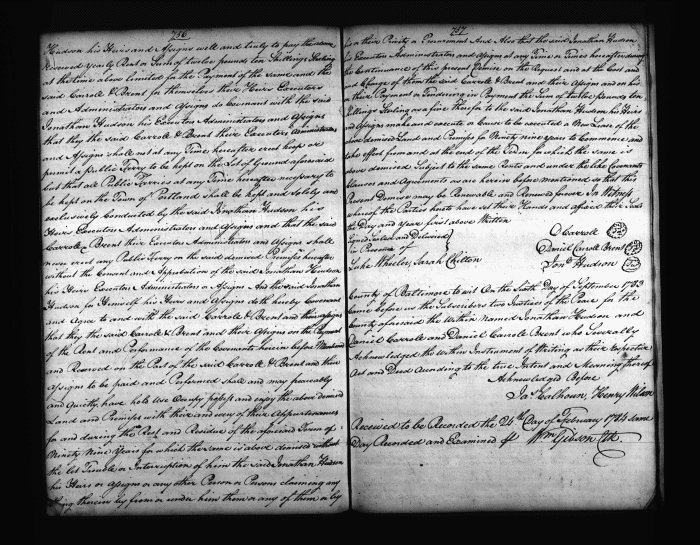 756
Hudson his Heirs and Assigns well and truly to pay the above
reserved yearly Rent or Sum of twelve pounds ten Shillings Sterling
at the time above limited for the Payment of the same and the
said Carroll & Brent for themselves their Heirs Executors
and Administrators and Assigns do Covenant with the said
Jonathan Hudson his Executors Administrators and Assigns
that they the said Carroll & Brent their Executors Administrators
and Assigns shall not at any Time hereafter erect keep or
permit a Public Ferry to be kept on the Lot of Ground aforesaid
but that all Public Ferries at any time hereafter necessary to
be kept on the Town of Portland shall be kept and solely and
exclusively Conducted by the said Jonathan Hudson his
Heirs Executors Administrators and Assigns and that the said
Carroll & Brent their Executors Administrators and Assigns shall
never erect any Public Ferry on the said demised Premises hereafter
without the Consent and Approbation of the said Jonathan Hudson
his Heirs Executors Administrators or Assigns And the said Jonathan
Hudson for himself his Heirs and Assigns doth hereby Covenant
and Agree to and with the said Carroll & Brent and their Assigns
that they the said Carroll & Brent and their Assigns on the Payment
of the Rent and Performance of the Covenants herein before Mentioned
and Reserved on the Part of the said Carroll & Brent and their
Assigns to be paid and Performed shall and may peaceably
and Quietly have hold use Occupy possess and enjoy the above demised
Land and Premises with their and every of their Appurtenances
for and during the Rest and Residue of the aforesaid Term of
Ninety Nine Years for which the same is above demised without
the let Trouble or Interruption of him the said Jonathan Hudson
his Heirs or Assigns or any other Person or Persons claiming any
thing therein by from or under him them or any of them or by
757
his or their Privity or Procurement And Also that the said Jonathan Hudson
his Executors Administrators and Assigns at any Time or Times hereafter during
the Continuance of the present Demise on the Request and at the Cost and
Charge of them the said Carroll & Brent and their Assigns and on his
or their Payment or Tendering in Payment the Sum of twelve pounds ten
Shillings Sterling as a fine therefor to the said Jonathan Hudson his Heirs
and Assigns make and execute or Cause to be executed a New Lease of the
above demised Land and Premises for Ninety nine Years to Commence and
take effect from and at the end of the Term for which the same is
above demised Subject to the same Rents and under the like Covenants
Clauses and Agreements as are herein before mentioned so that this
Present Demise may be Renewable and Renewed forever In Witness
whereof the Parties hereto have set their Hands and affixed their Seals
the Day and Year first above Written
Signed Sealed and Delivered
in Presence of
Luke Wheeler, Sarah Chilton
D Carroll
Daniel Carroll Brent
Jonn Hudson
County of Baltimore to wit On the Sixth Day of September 1783
Came before us the Subscribers two Justices of the Peace for the
County aforesaid the within Named Jonathan Hudson and
Daniel Carroll and Daniel Carroll Brent who Severally
Acknowledged the within Instrument of Writing as their respective
Act and Deed According to the true Intent and Meaning thereof
Acknowledged Before
Jas Calhoun, Henry Wilson
Received to be Recorded the 24th Day of February 1784 same
Day Recorded and Examined Wm Gibson Clk